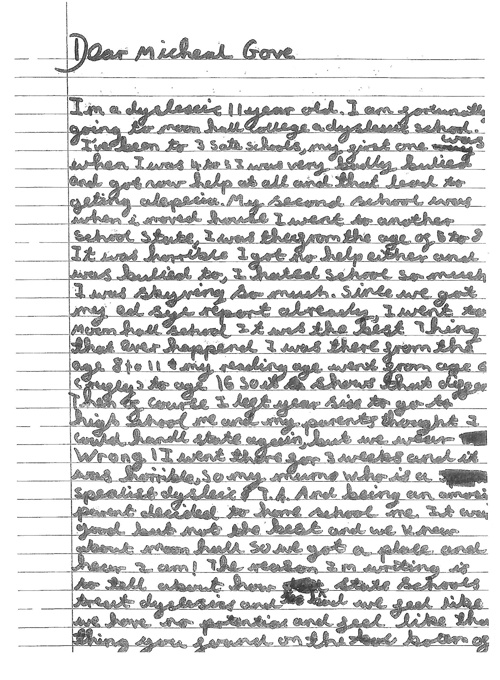 Dear Micheal Gove
I'm a dyslexic 11 year old. I am fortunatly
going to moon hall college a dyslexic school.
I've been to 3 Sate schools, my first one was
when I was 4 to 5 I was very badly bulied
and got now help at all and that lead to
geting alopecia. My second school was
when i moved house I went to another
School State, I was there from the age of 6 to 8
It was horrible I got to help either and
was bulied to, I hated school so much
I was skyving so much. Since we got
my ed syc report already, I went to
Moon hall school It was the best Thing
that ever happend. I was there from the
age 8 to 11 & my reading age went from age 6
to age 16 so it shows that
Then of course I left year six to go to
high school me and my parents thought I
could handl state again, but we wear
Wrong! I went there for 3 weeks and it
was horrible, so my mum who is a
spealist dyslexic T.A. And being an
parent decided to home school me. It
good but not the best and we knew
about moon hall so we got a place and
hear I am! The reason I'm writing is
to tell about how state schools
treat dyslexics and we feel like
we have no potential and feel like the
thing you found on the botom of